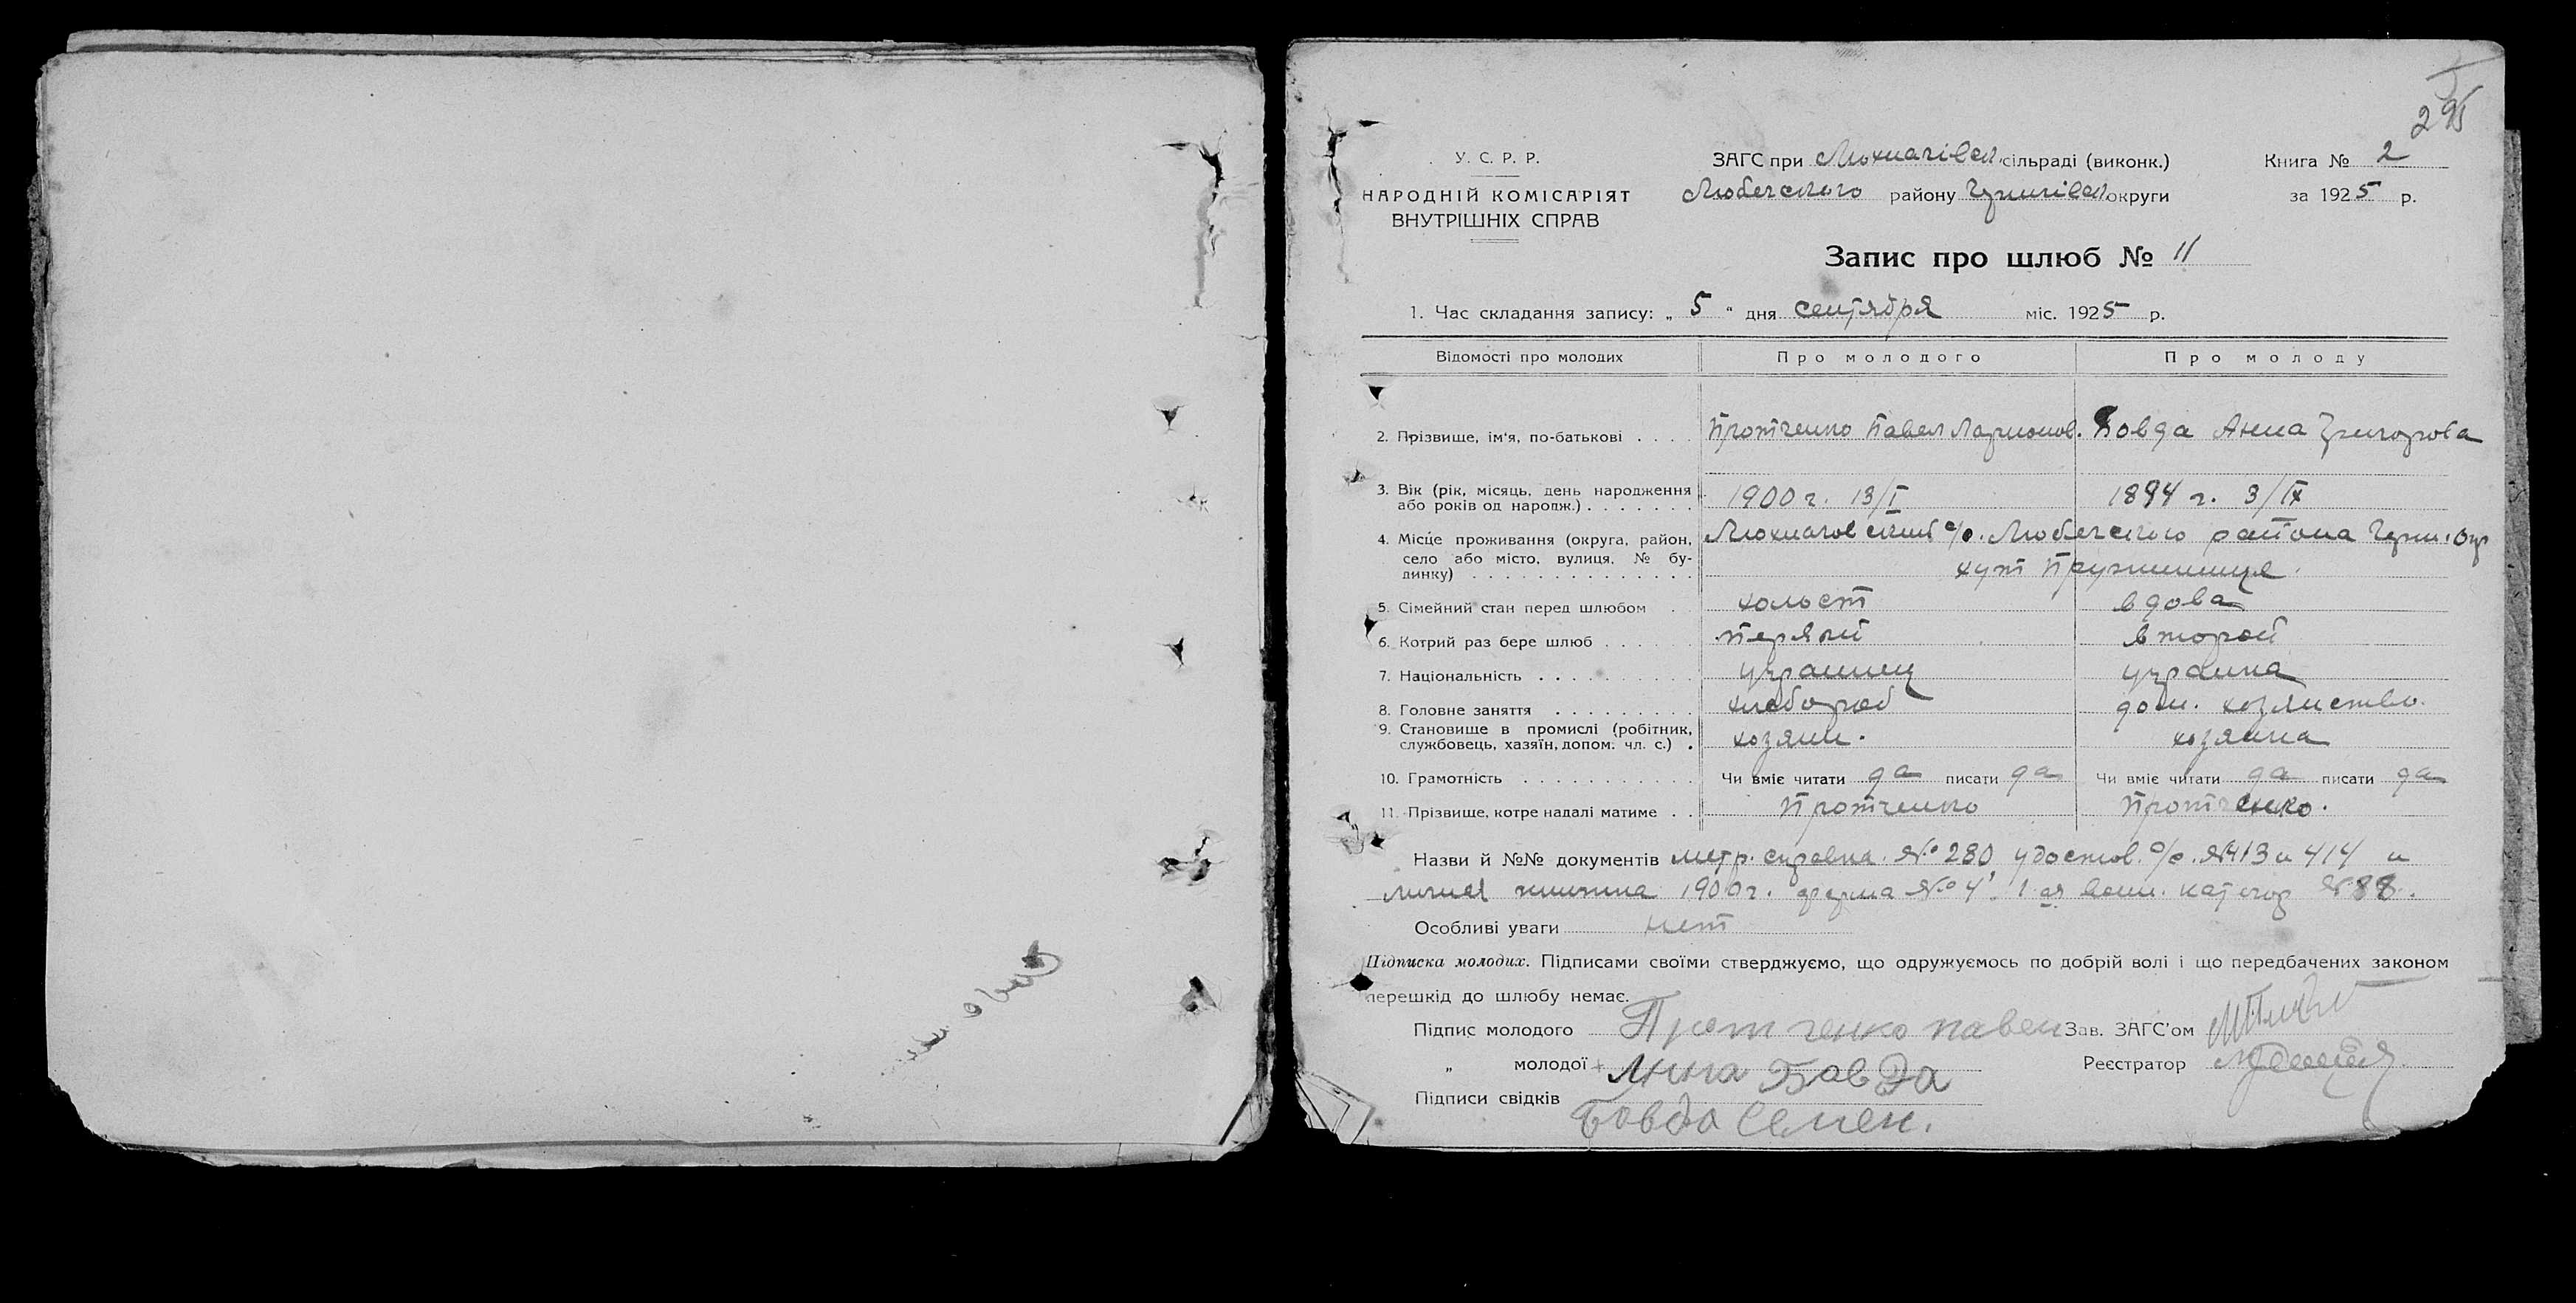 295
У. С. Р. Р.
НАРОДНІЙ КОМІСАРІЯТ
ВНУТРІШНІХ СПРАВ
ЗАГС при сільраді (виконк.)
Любечского району Чернігівск округи
Книга № 2
за 1925 р.
Запис про шлюб № 11
1. Час складання запису: „ 5 " дня сентября міс. 1925 р.
Відомості про молодих Про молодого Про молоду
2. Прізвище, ім'я, по-батькові . . . . Протченко Павел Ларионов. Бовда Анна Григорова
3. Вік (рік, місяць, день народження
або років од народж.) . . . . . . . 1900 г. 13/I 1894 г. 3/IX
4. Місце проживання (округа, район, с/с. Любечского района Черн. Окр
село або місто, вулиця, № бу-
динку) . . . . . . . . . . . . . . хут
5. Сімейний стан перед шлюбом . . холост вдова
6. Котрий раз бере шлюб . . . . . . первый второй
7. Національність . . . . . . . . . . украинец украинка
8. Головне заняття . . . . . . . . . хлебороб дом. хозяйство.
9. Становище в промислі (робітник,
службовець, хазяїн, допом. чл. с.) . хозяин. хозяйка
10. Грамотність . . . . . . . . . . . Чи вміє читати да писати да Чи вміє читати да писати да
11. Прізвище, котре надалі матиме . . Протченко Протченко.
Назви й №№ документів метр. справка № 280 удостов. с/с. № 413 и 414 и
личная книжка 1900 г. форма № 4, 1-ая воин. категор № 88.
Особливі уваги нет
Підписка молодих. Підписами своїми стверджуємо, що одружуємось по добрій волі і що передбачених законом
перешкід до шлюбу немає.
Підпис молодого Протченко павел Зав. ЗАГС'ом
„ молодої + Анна Бовда Реєстратор
Підписи свідків Бовда Семен.